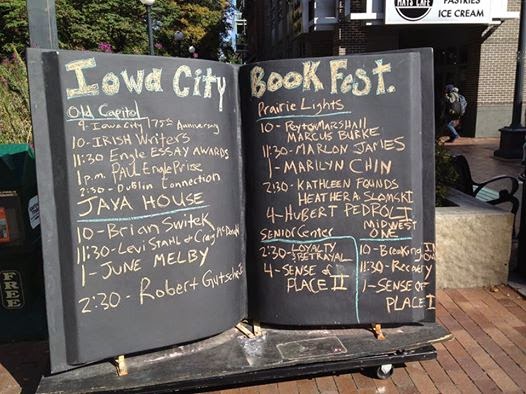 Iowa City
Old Capitol
4-Iowa City 175th Anniversary
10-IRISH Writers
11:30 Engle ESSAY AWARDS
1 p.m. PAUL Engle Prize
2:30-Dublin Connection
JAVA HOUSE
10-Brian Switek
11:30-Levi Stahl + Craig
1-JUNE MELBY
2:30-Robert
Book Fest.
Prairie Lights
10-Peyton MARSHALL
MARCUS BURKE
11:30-MARLON JAMES
1-MARILYN CHIN
2:30-KATHLEEN FOUNDS
HEATHER A SLOMSKI
4-HUBERT PEDROLI
SENIOR Center
2:30-LOYALTY
+ BETRAYAL
4-SENSE of
PLACE II
MIDWEST
ONE
10-Breaking IN
11:30-Recovery
1-SENSE OF
PLACE I
FREE
PASTRIES
ICE CREAM